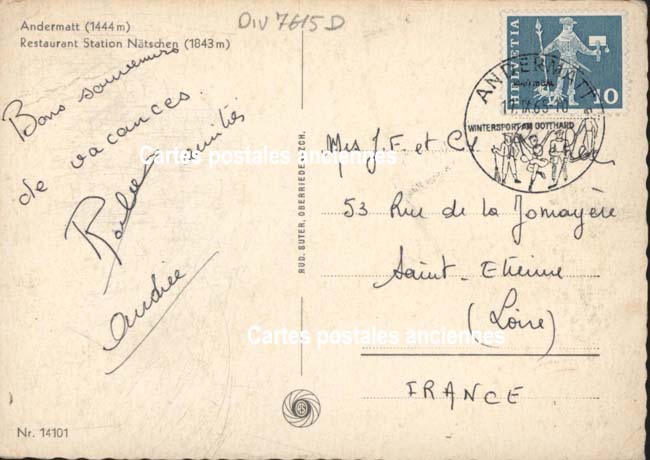 Andermatt (1444 m)
Restaurant Station Nätschen (1843 m)
DIV 7615 D
Bons souvenirs
de vacances.
amitiés
andrée
RUD. SUTER, OBERRIEDEN-ZCH.
HELVETIA
10
ANDERMATT
WINTERSPORT AM GOTTHARD
J.F. et
53 Rue de la Jomayère
Saint-Etienne
(Loire)
FRANCE
Cartes postales anciennes
Cartes postales anciennes
Nr. 14101